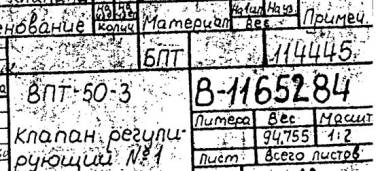 нование Материал Примеч.
Колич Вес
БПТ 114445
ВПТ-50-3 В-1165284
Литера Вес Масшт
Клапан регули- 94,755 1:2
рующий №1 Лист Всего листов